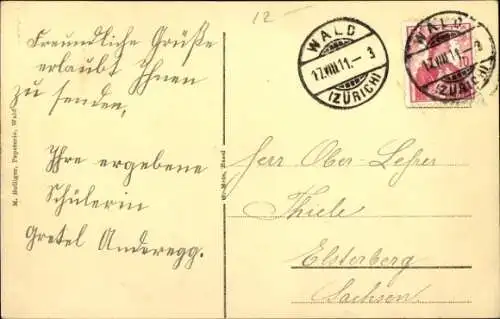 12 -
Freundliche Grüße
erlaubt Ihnen
zu senden,
Ihre ergebene
Schülerin
Gretel Anderegg.
M. Hediger, Papeterie, Wald
WALD
17.VIII.11.- 3
(ZÜRICH)
WALD
17.VIII.11.- 3
(ZÜRICH)
Herr Ober-Lehrer
Thiele
Elsterberg
Sachsen